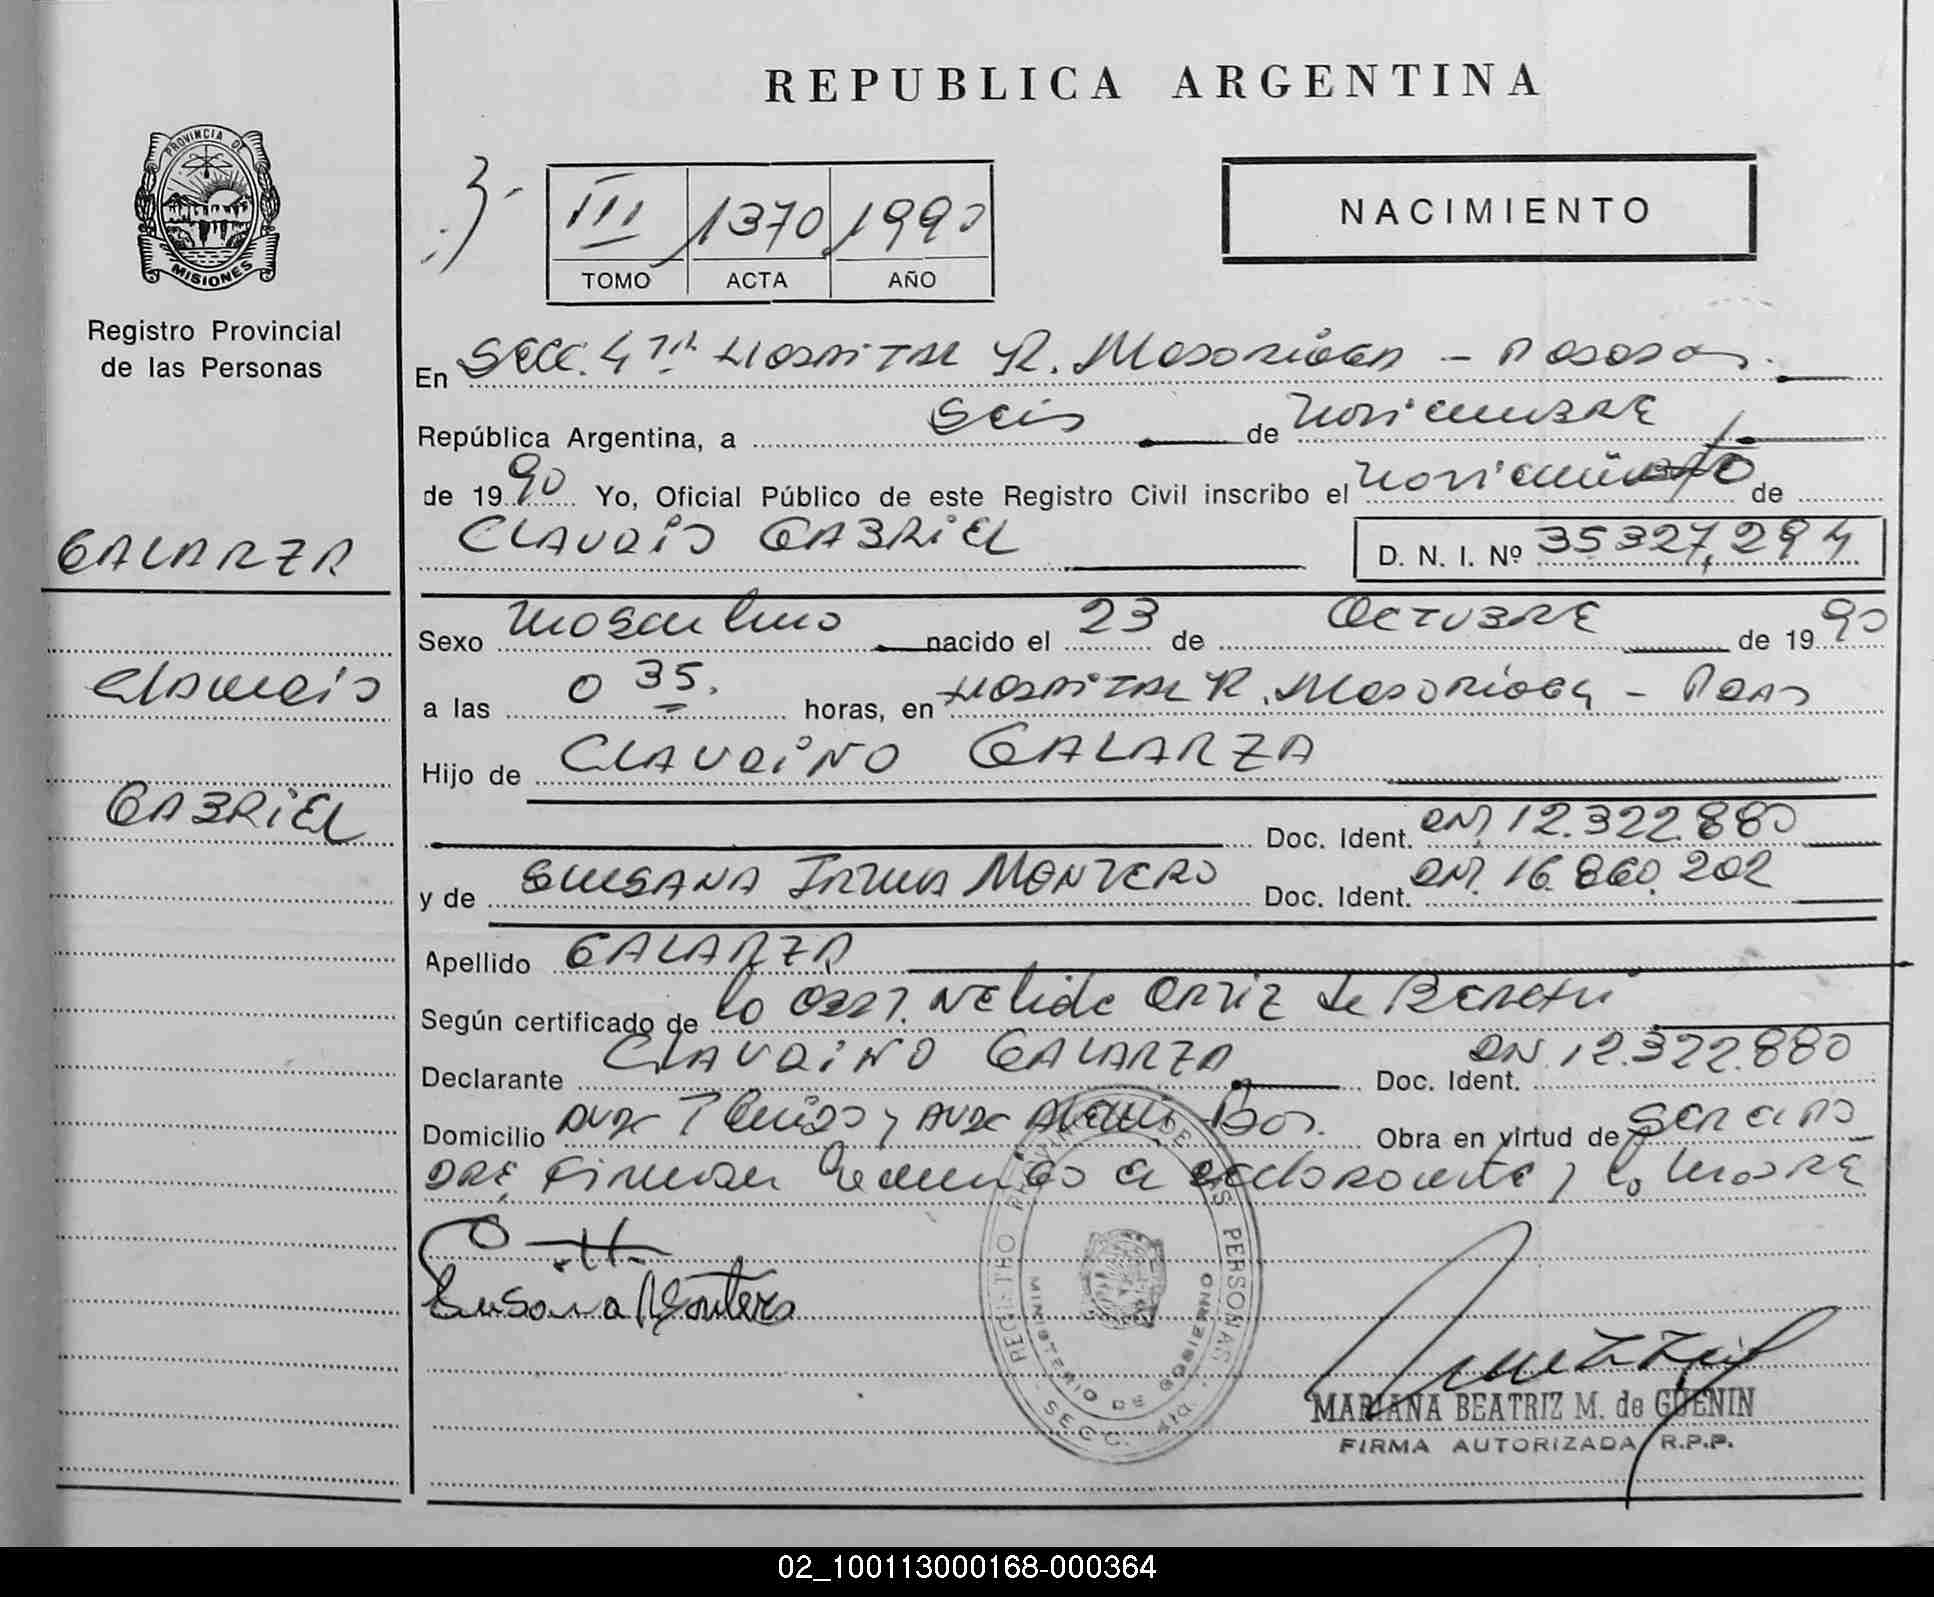 REPUBLICA ARGENTINA
PROVINCIA DE
MISIONES
Registro Provincial
de las Personas
III 1370 1990
TOMO ACTA AÑO
NACIMIENTO
En Secc. 4ta Hospital R. Madariaga - Posadas.
República Argentina, a Seis de Noviembre
de 1990 Yo, Oficial Público de este Registro Civil inscribo el de
GALARZA
CLAUDIO GABRIEL
D. N. I. Nº 35.327.294
Sexo Masculino nacido el 23 de OCTUBRE de 1990
Claudio
a las 0 35. horas, en Hospital R. Madariaga - Pdas
Hijo de CLAUDINO GALARZA
GABRIEL
Doc. Ident. DNI 12.322.880
y de SUSANA IRMA MONTERO Doc. Ident. DNI. 16.860.202
Apellido GALARZA
Según certificado de la Obst. Nelida Ortiz de
Declarante CLAUDINO GALARZA Doc. Ident. DNI. 12.322.880
Domicilio y Obra en virtud de ser el pa
dre, Firman el declarante y la madre
Susana Montero
REGISTRO PROVINCIAL DE LAS PERSONAS
MINISTERIO DE GOBIERNO
SECC. 4ta
MARIANA BEATRIZ M. de GUENIN
FIRMA AUTORIZADA R.P.P.
02_100113000168-000364